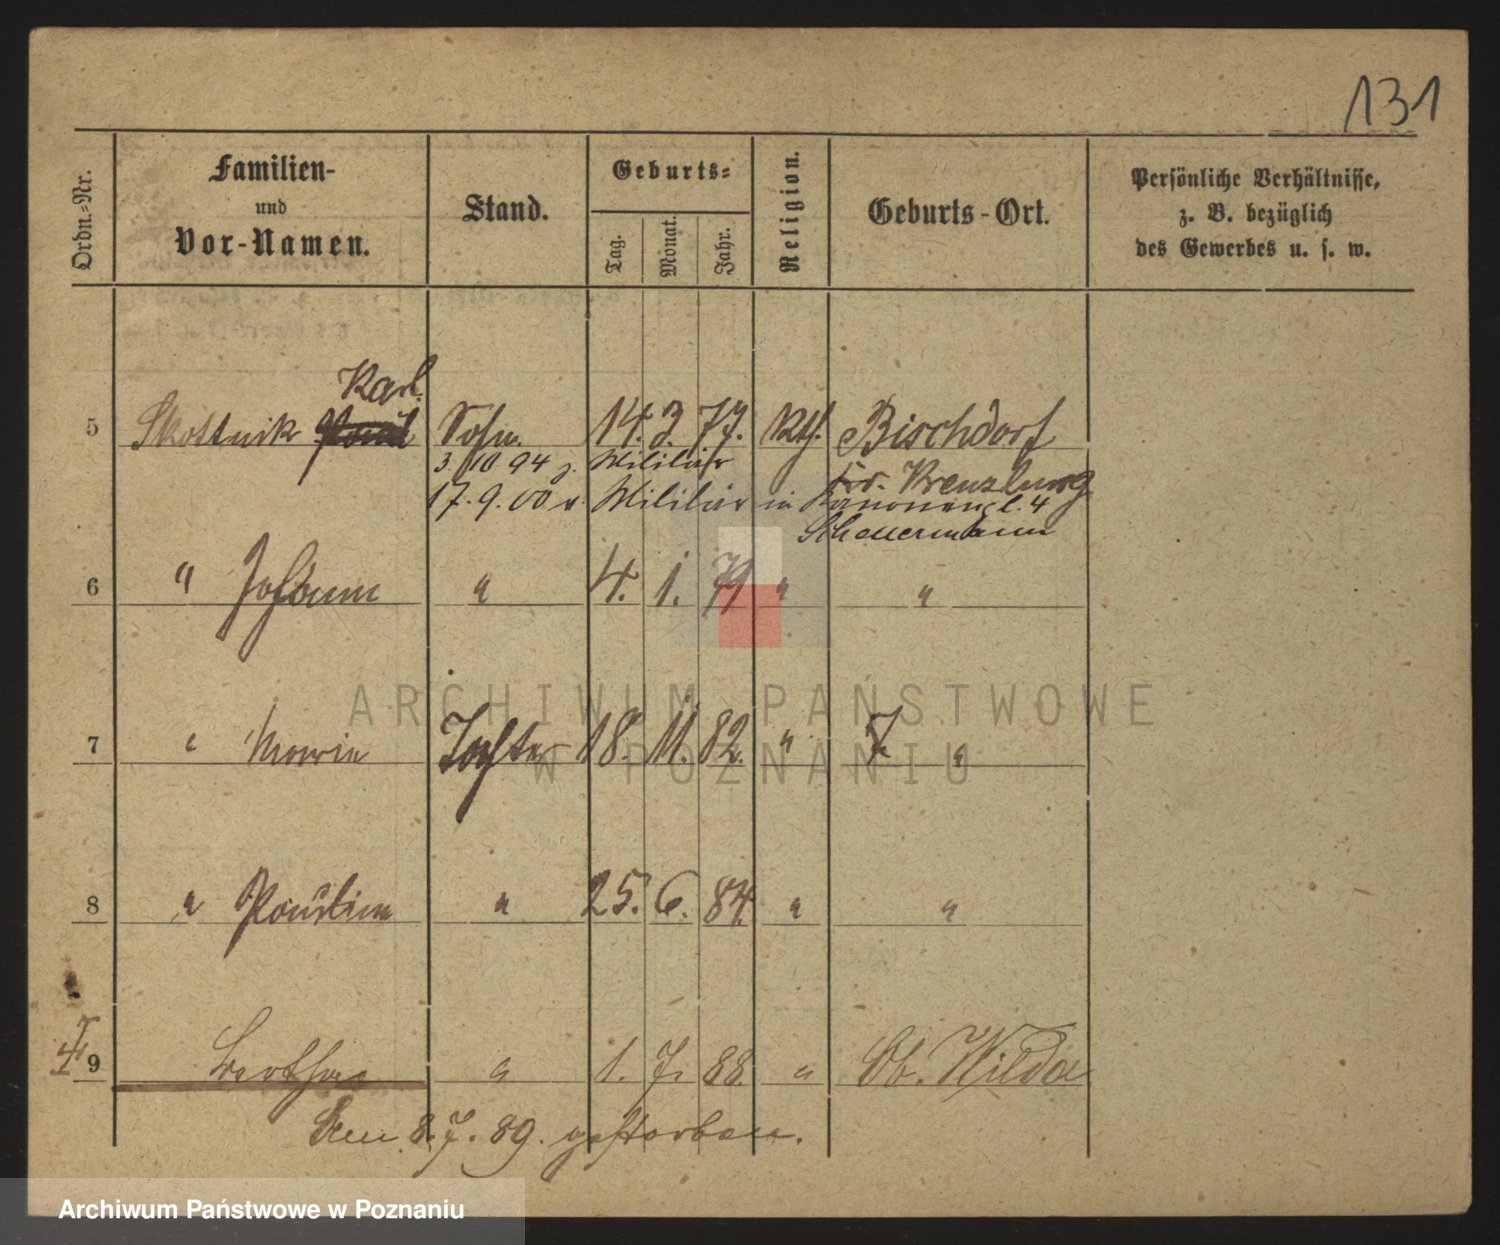 131
Ordn.=Nr.
Familien-
und
Vor-Namen.
Stand.
Geburts=
Tag.
Monat.
Jahr.
Religion.
Geburts-Ort.
Persönliche Verhältnisse,
z. B. bezüglich
des Gewerbes u. s. w.
Karl.
5 Skottnik Paul Sohn. 14. 3. 77. Kth. Bischdorf
3 10 94 z. Militär
Krd. Kreuzburg
17. 9. 00 v. Militär in Kanonenpl. 4
Scheuermann
6 " Johann " 4. 1. 79 " "
7 " Marie Tochter 18. 11. 82. " "
8 " Pauline " 25. 6. 84. " "
9 Bertha " 1. 7. 88. " Ob. Wilda
Den 8. 7. 89. gestorben.
ARCHIWUM PAŃSTWOWE
W POZNANIU
Archiwum Państwowe w Poznaniu